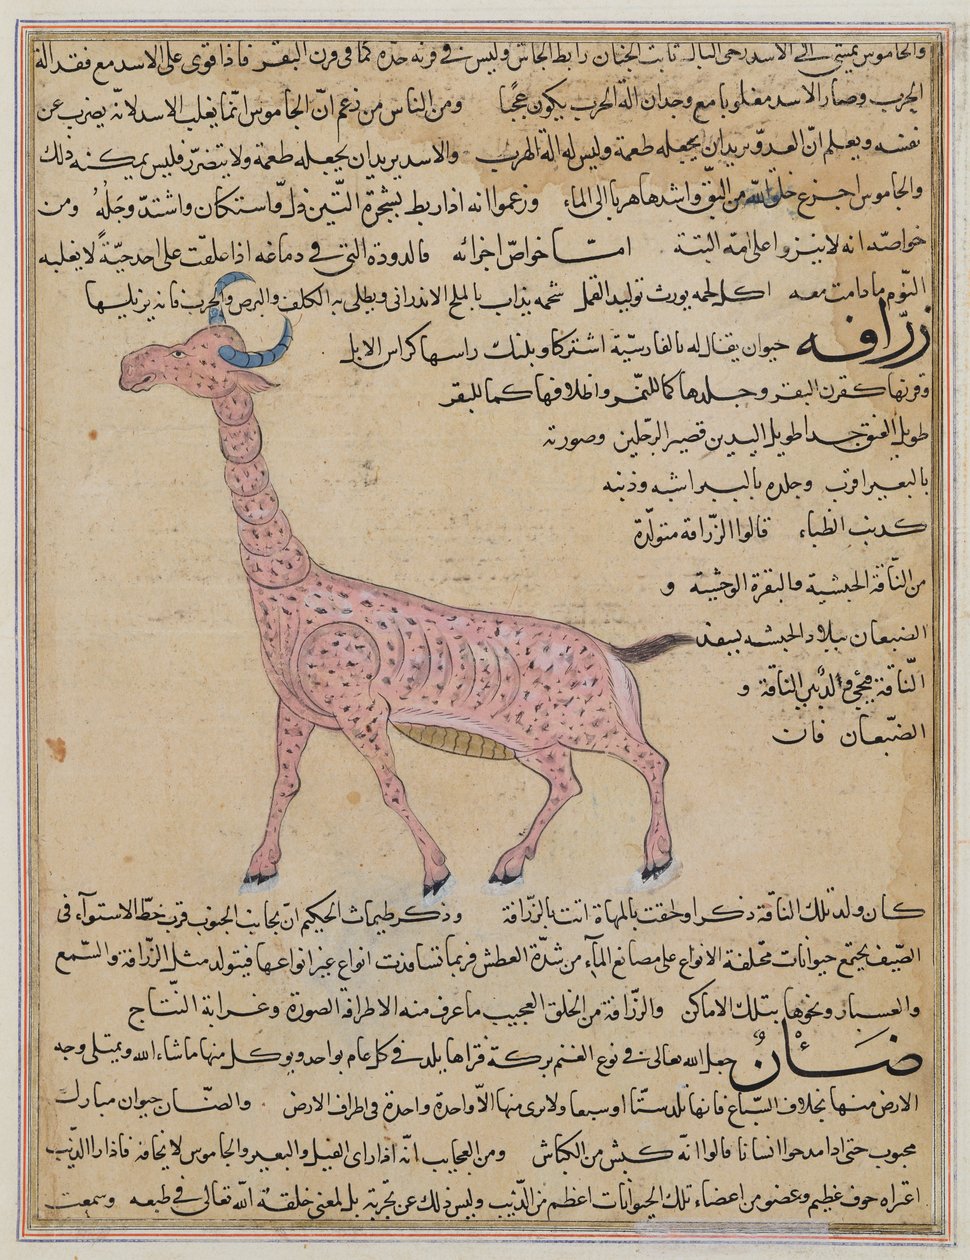 والجاموس يمشي الى الاسد رخى البال ثابت الجنان رابط الجاش وليس في قرنه حدة كما في قرن البقر فاذا قوى على الاسد مع فقد الة
الحرب وصار الاسد مغلوبا مع وجدان الة الحرب يكون عجبا ومن الناس من زعم ان الجاموس انما يغلب الاسد لانه يضرب عن
نفسه ويعلم ان العدو يريد ان يجعله طعمة وليس له الة الهرب والاسد يريد ان يجعله طعمة ولا يتضرر فليس يمكنه ذلك
والجاموس اجزع خلق الله من البق واشدها هربا الى الماء وزعموا انه اذا ربط بشجرة التين ذل واستكان واشتد وجله ومن
خواصه انه لا ينزوا على امه البتة امّا خواص اجزائه فالدودة التي في دماغه اذا علقت على احد حية لا يغلبه
النوم ما دامت معه اكل لحمه يورث توليد القمل شحمه يذاب بالملح الاندرانى ويطلى به الكلف والبرص والجرب فانه يزيلها
زرّافه حيوان يقال له بالفارسيّة اشتركاوبلنك راسها كراس الابل
وقرنها كقرن البقر وجلدها كما للنمر واظلافها كما للبقر
طويل العنق جدا طويل اليدين قصير الرجلين وصورته
بالبعير اقرب وجلده بالببر اشبه وذنبه
كذنب الظباء قالوا الزّرافة متولّدة
من الناقة الحبشية والبقرة الوحشية و
الضبعان ببلاد الحبشه يسفد
النّاقة فيجئ ولد بين الناقة و
الضبعان فان
كان ولد تلك الناقة ذكرا ولحقت بالمهاة اتت بالزرافة وذكر طيماث الحكيم ان بجانب الجنوب قرب خط الاستوآء فى
الصّيف يجتمع حيوانات مختلفة الانواع على مصانع المآء من شدّة العطش فربما تسافدت انواع غير انواعها فيتولد مثل الزرافة والسّمع
والعسبار ونحوها بتلك الاماكن والزّرافة من الخلق العجيب ما عرف منه الا طرافة الصورة وغرابة النّتاج
ضَأْنٌ جعل الله تعالى في نوع الغنم بركة فتراها يلد في كل عام بواحد ويوكل منها ما شاء الله ويمتلى وجه
الارض منها بخلاف السّباع فانها تلد ستّا او سبعا ولا يرى منها الّا واحدة واحدة فى اطراف الارض والضّان حيوان مبارك
محبوب حتى اذا مدحوا انسانا قالوا انّه كبش من الكباش ومن العجايب انّه اذا راى الفيل والبعير والجاموس لا يخافه فاذا راا الذّيب
اعتراه خوف عظيم وعضو من اعضاء تلك الحيوانات اعظم من الذّيب وليس ذلك عن تجربة بل لمعنى خلقه الله تعالى في طبعه وسمعت